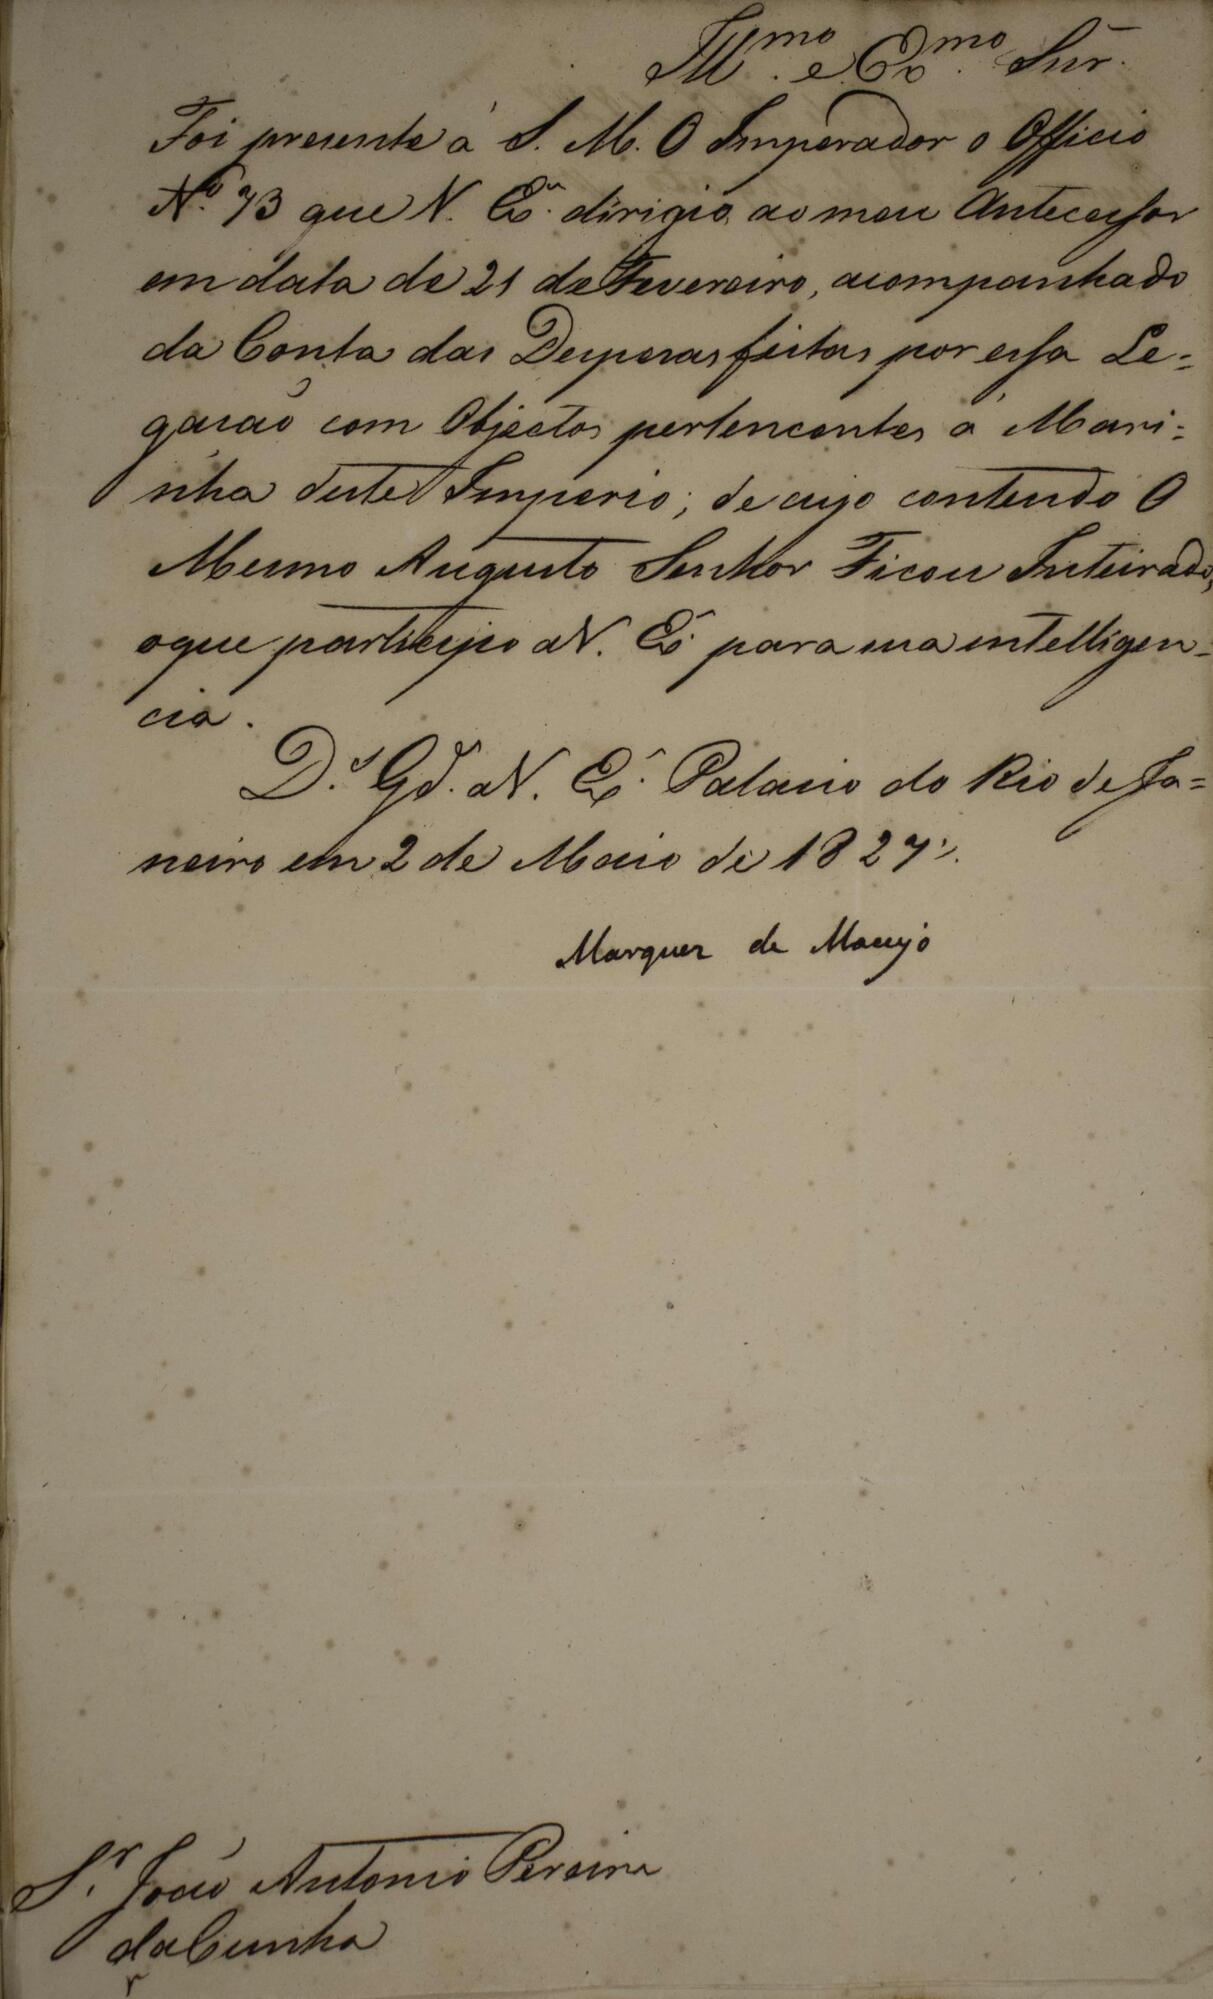 Illmo. e Exmo. Snr.
Foi presente á S. M. O Imperador o Officio
No. 73 que V. Exa. dirigio ao meu Antecessor
em data de 21 de Fevereiro, acompanhado
da Conta das Despesas feitas por essa Le=
gação com Objectos pertencentes á Mari=
nha deste Imperio; de cujo contendo O
Mesmo Augusto Senhor Ficou Inteirado,
o que participo a V. Ex. para sua intelligen=
cia.
Ds. Gde. a V. Ex. Palacio do Rio de Ja=
neiro em 2 de Maio de 1827.
Marquez de Maceyó
Sr. João Antonio Pereira
da Cunha